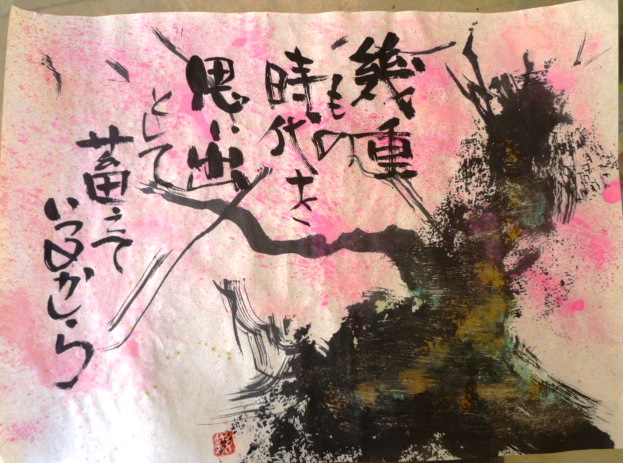 幾重
もの
時代を
思い出
として
蓄えて
いるのかしら